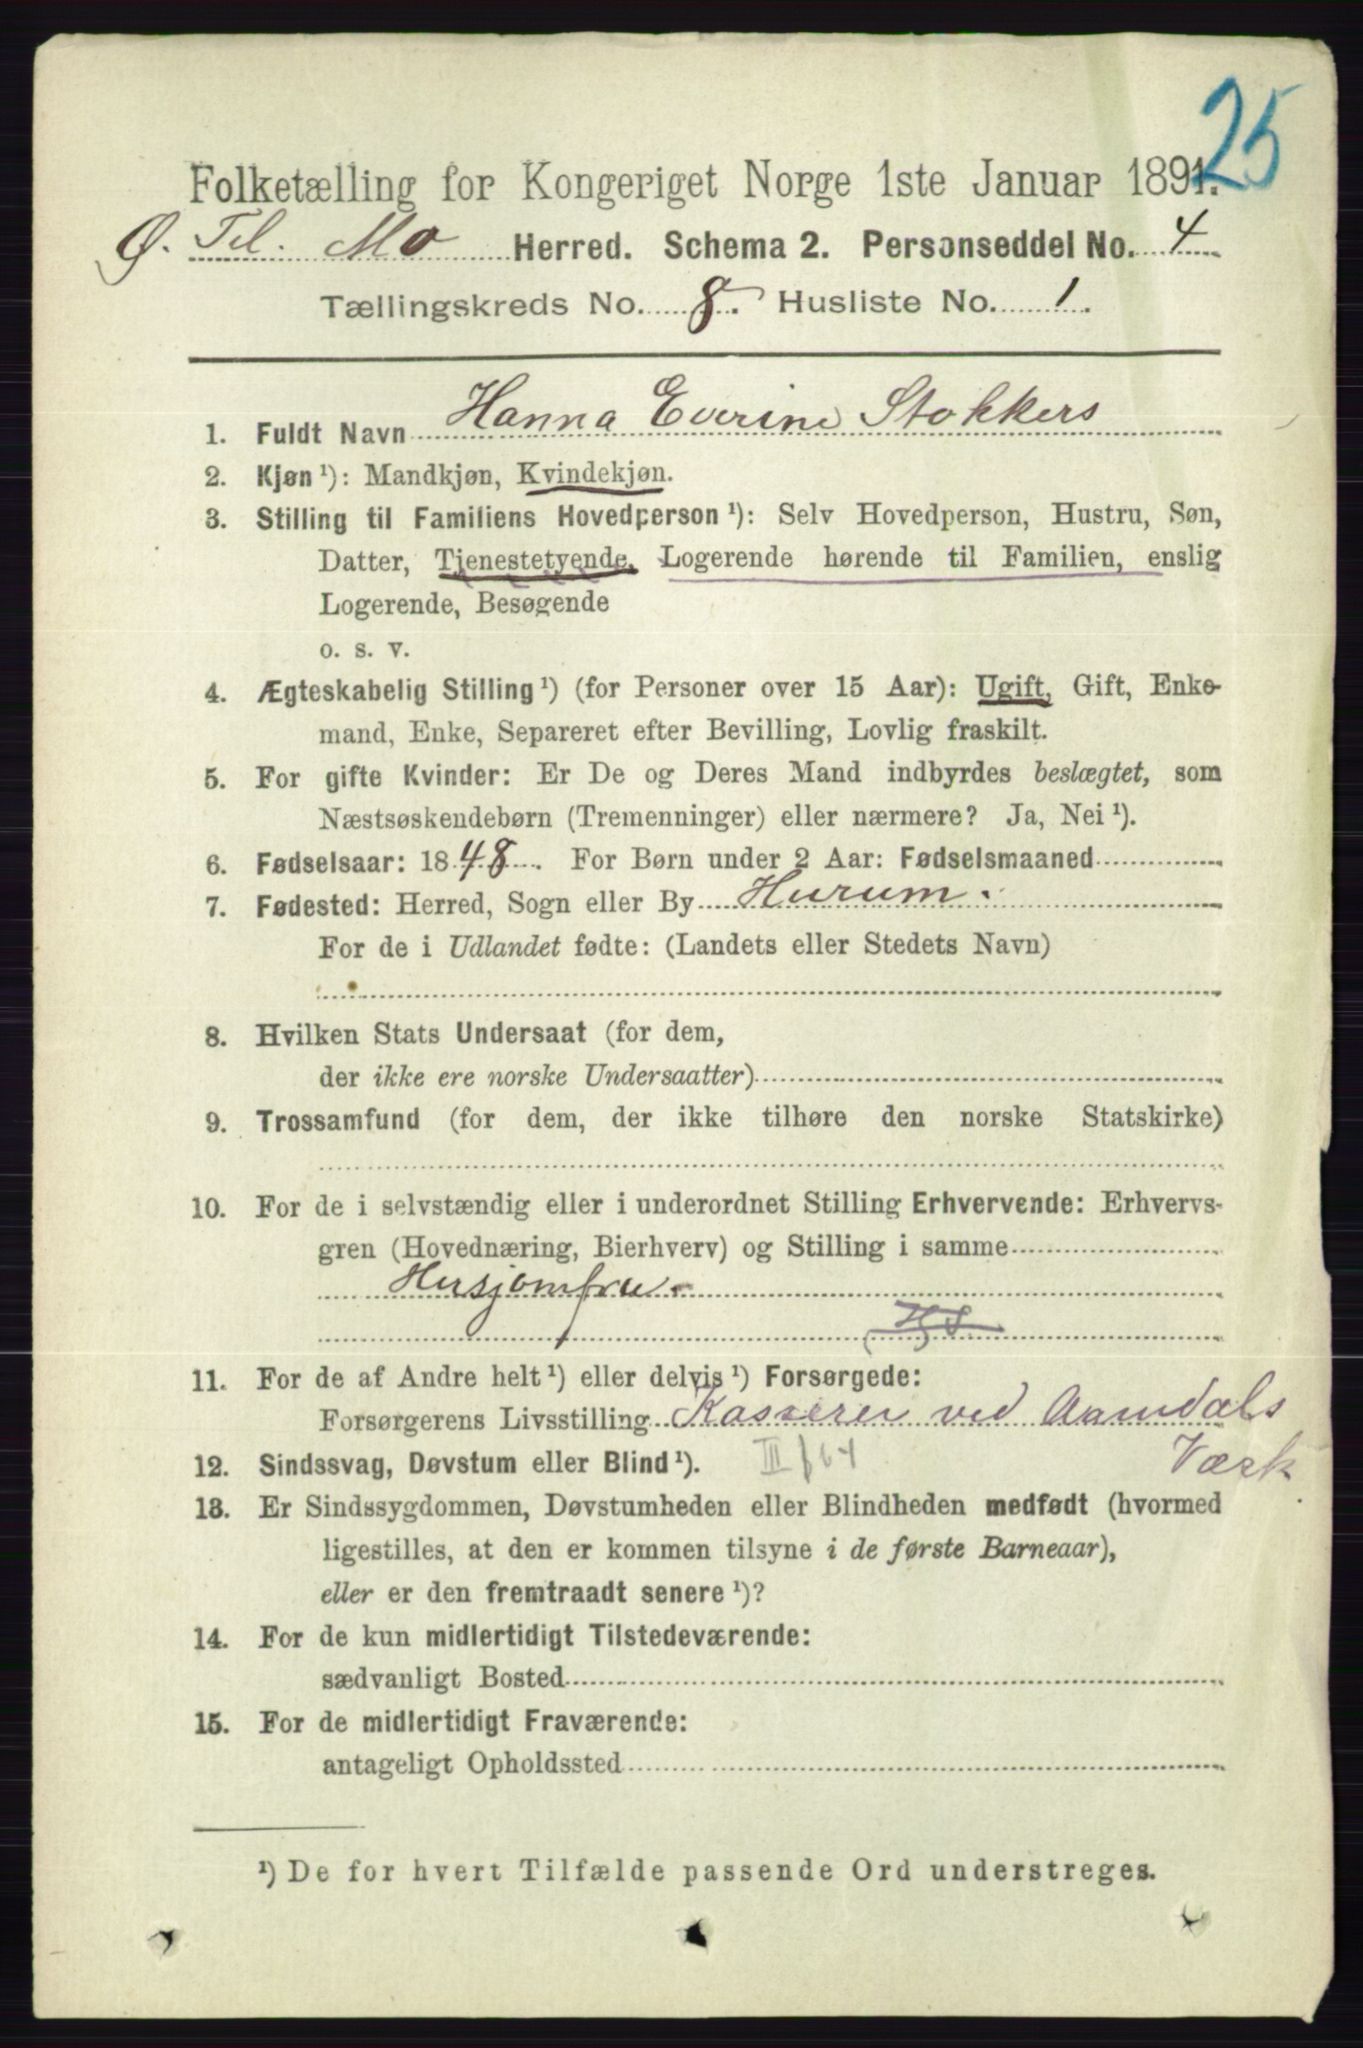 25
Folketælling for Kongeriget Norge 1ste Januar 1891.
Ø. Tel. Mo Herred. Schema 2. Personseddel No. 4
Tællingskreds No. 8. Husliste No. 1.
1. Fuldt Navn Hanna Everine Stokkers
2. Kjøn ¹): Mandkjøn, Kvindekjøn.
3. Stilling til Familiens Hovedperson ¹): Selv Hovedperson, Hustru, Søn,
Datter, Tjenestetyende, Logerende hørende til Familien, enslig
Logerende, Besøgende
o. s. v.
4. Ægteskabelig Stilling ¹) (for Personer over 15 Aar): Ugift, Gift, Enke-
mand, Enke, Separeret efter Bevilling, Lovlig fraskilt.
5. For gifte Kvinder: Er De og Deres Mand indbyrdes beslægtet, som
Næstsøskendebørn (Tremenninger) eller nærmere? Ja, Nei ¹).
6. Fødselsaar: 1848. For Børn under 2 Aar: Fødselsmaaned
7. Fødested: Herred, Sogn eller By Hurum.
For de i Udlandet fødte: (Landets eller Stedets Navn)
8. Hvilken Stats Undersaat (for dem,
der ikke ere norske Undersaatter)
9. Trossamfund (for dem, der ikke tilhøre den norske Statskirke)
10. For de i selvstændig eller i underordnet Stilling Erhvervende: Erhvervs-
gren (Hovednæring, Bierhverv) og Stilling i samme
Husjomfru.
11. For de af Andre helt ¹) eller delvis ¹) Forsørgede:
Forsørgerens Livsstilling Kasserer ved Aamdals
Værk
12. Sindssvag, Døvstum eller Blind ¹). III/64
13. Er Sindssygdommen, Døvstumheden eller Blindheden medfødt (hvormed
ligestilles, at den er kommen tilsyne i de første Barneaar),
eller er den fremtraadt senere ¹)?
14. For de kun midlertidigt Tilstedeværende:
sædvanligt Bosted
15. For de midlertidigt Fraværende:
antageligt Opholdssted
¹) De for hvert Tilfælde passende Ord understreges.